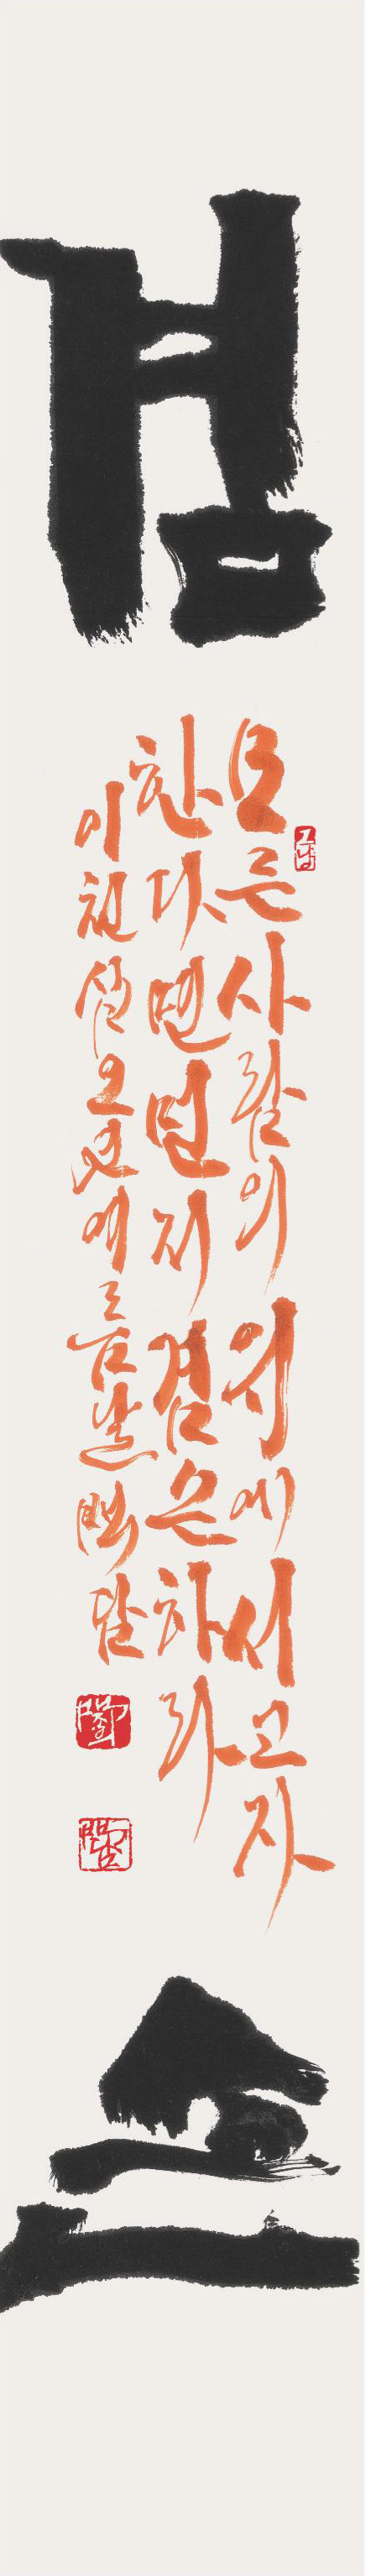 겸
손
모든사람의위에서고자
한다면먼저겸손하라
이천십오년여름